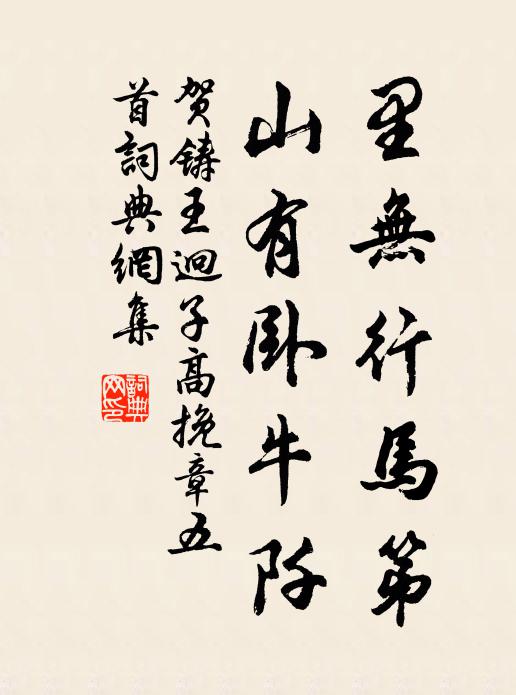 里無行馬第
山有卧牛阡
贺鑄王迥子高挽章五
首詞典網集
詞典網印